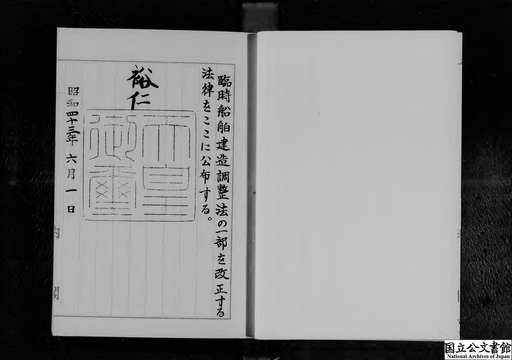 臨時船舶建造調整法の一部を改正する
法律をここに公布する。
裕仁
天皇御璽
昭和四十三年六月一日
国立公文書館
National Archives of Japan